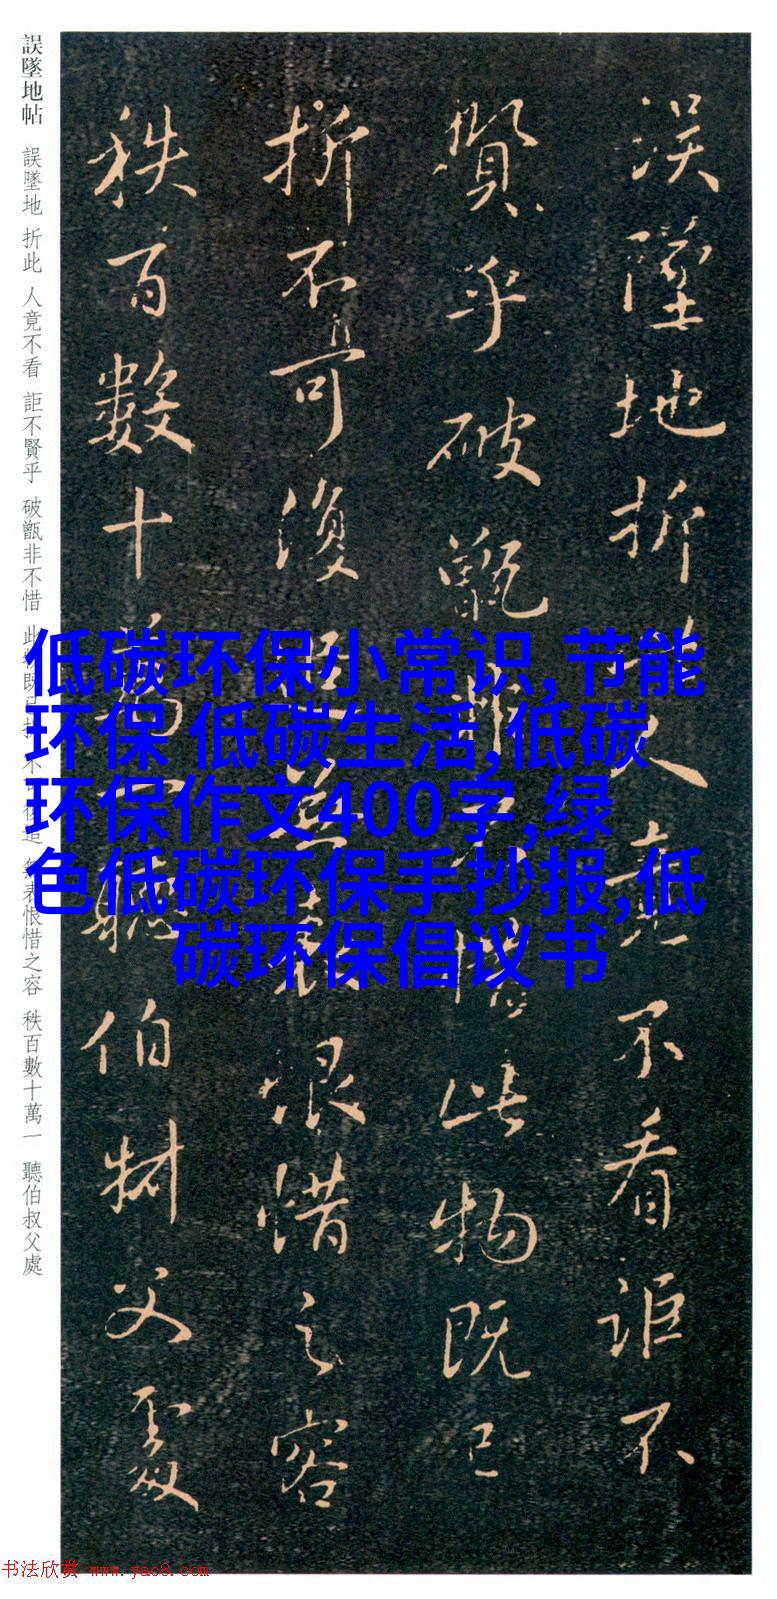 誤墜地折此人竟不看詎不
賢乎破甑非不惜此物既已
折不可復追無表恨惜之容
秩百數十萬一聽伯叔父處
誤墜地帖 誤墜地 折此 人竟不看 詎不賢乎 破甑非不惜 此物既已折 不可復追 無表恨惜之容 秩百數十萬一 聽伯叔父處
低碳环保小常识,节能
环保 低碳生活,低碳
环保作文400字,绿
色低碳环保手抄报,低
碳环保倡议书
书法欣赏 www.yac8.com